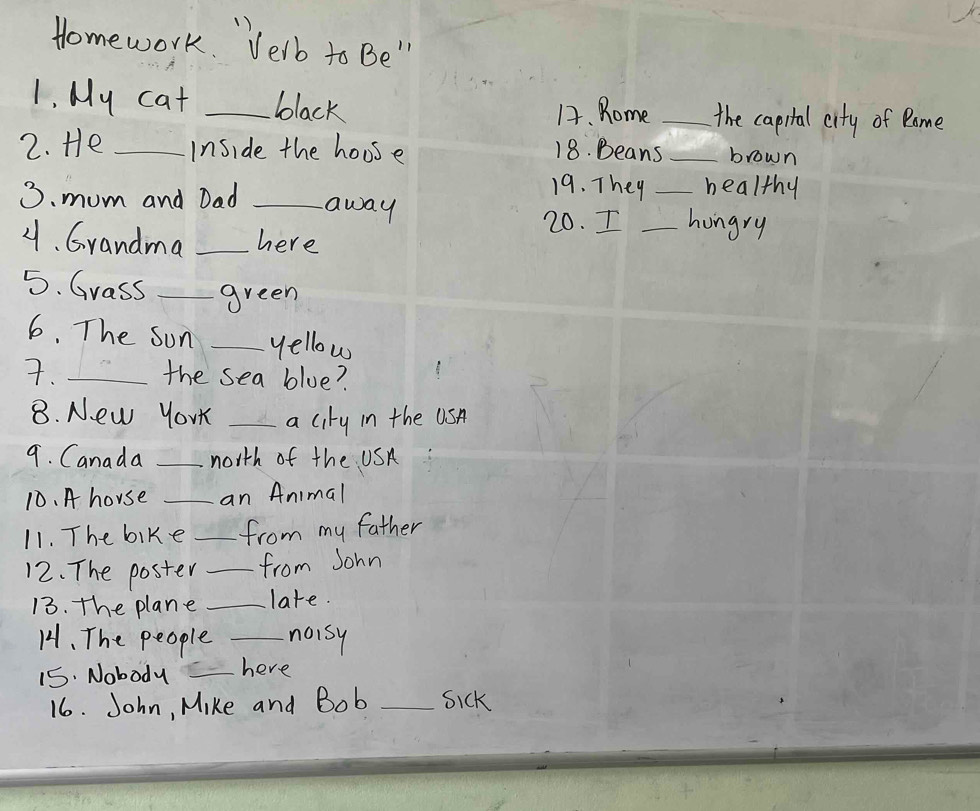 Homework. "Verb to Be"
1. My cat ___ black
2. He ___ inside the house
3. mum and Dad ___ away
4. Grandma ___ here
5. Grass ___ green
6. The sun ___ yellow
7. ___ the sea blue?
8. New York ___ a city in the USA
9. Canada ___ north of the USA
10. A horse ___ an Animal
11. The bike ___ from my father
12. The poster ___ from John
13. The plane ___ late.
14. The people ___ noisy
15. Nobody ___ here
16. John, Mike and Bob ___ sick
17. Rome ___ the capital city of Rome
18. Beans ___ brown
19. They ___ healthy
20. I ___ hungry